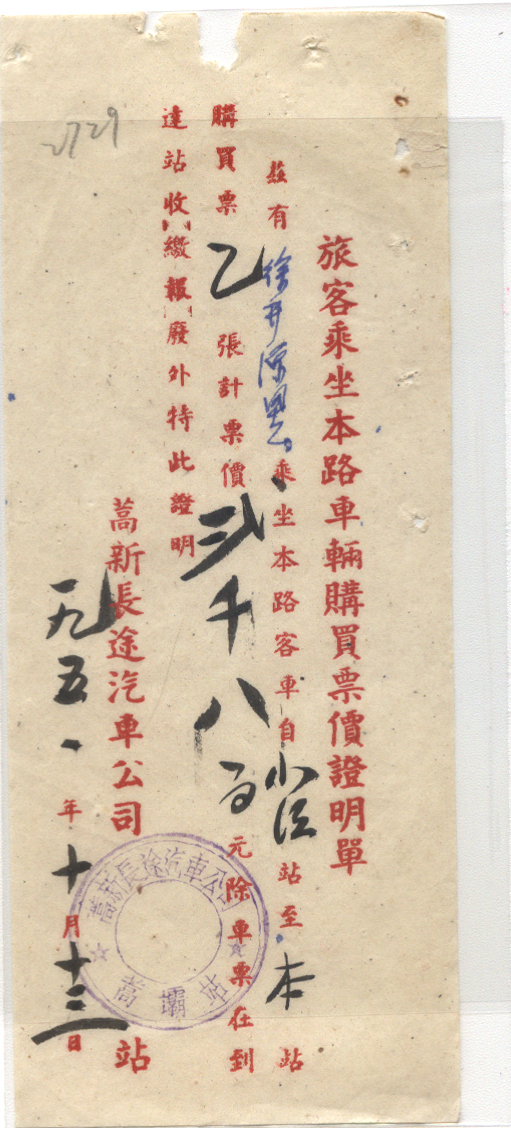 旅客乘坐本路車輛購買票價證明單
茲有徐乘坐本路客車自小站至本站
購買票乙張計票價弎千八百元除車票在到
達站收繳報廢外特此證明
蒿新長途汽車公司 站
一九五一年十月十三日
2729
蒿新長途汽車公司
蒿壩站